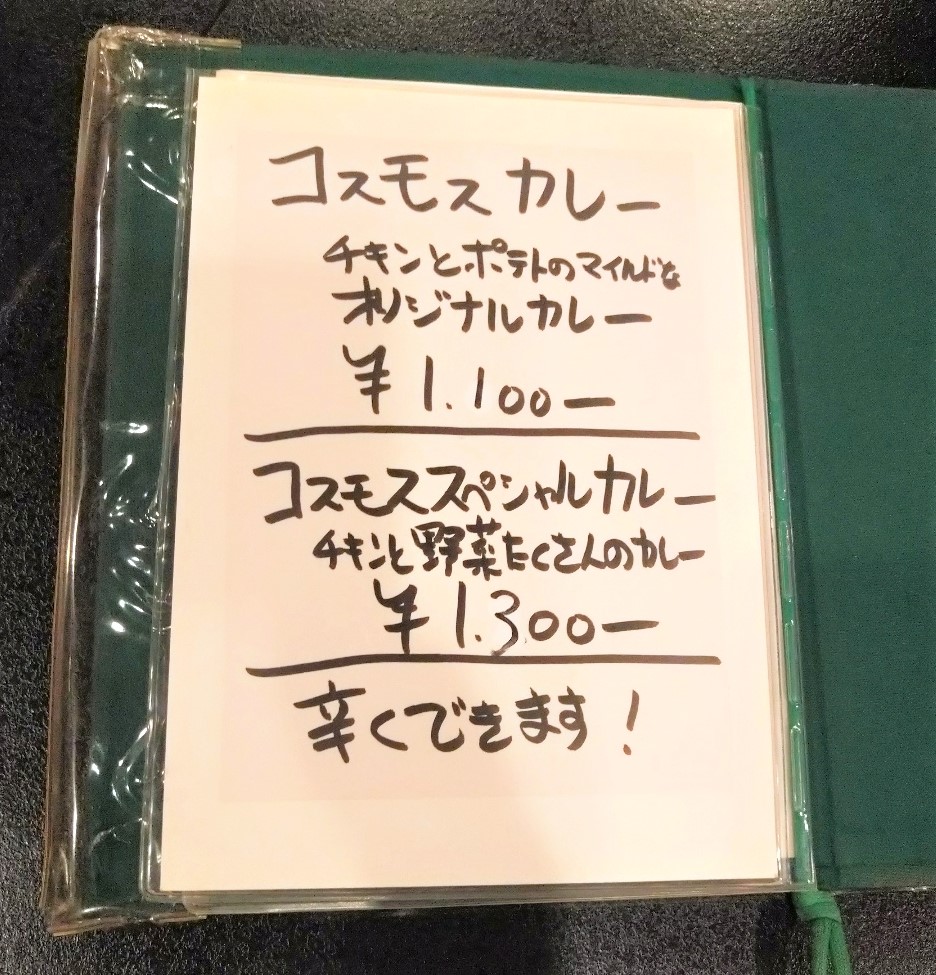 コスモスカレー
チキンとポテトのマイルドな
オリジナルカレー
¥1.100ー
コスモススペシャルカレー
チキンと野菜たくさんのカレー
¥1.300ー
辛くできます!